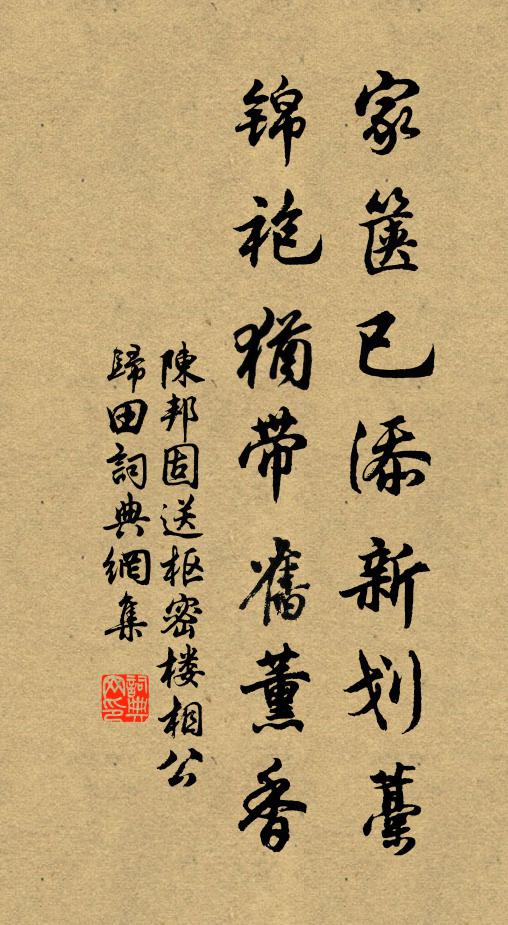 家箧已添新划藁
锦袍犹带舊薰香
陳邦固送枢密楼相公
歸田詞典網集
詞典